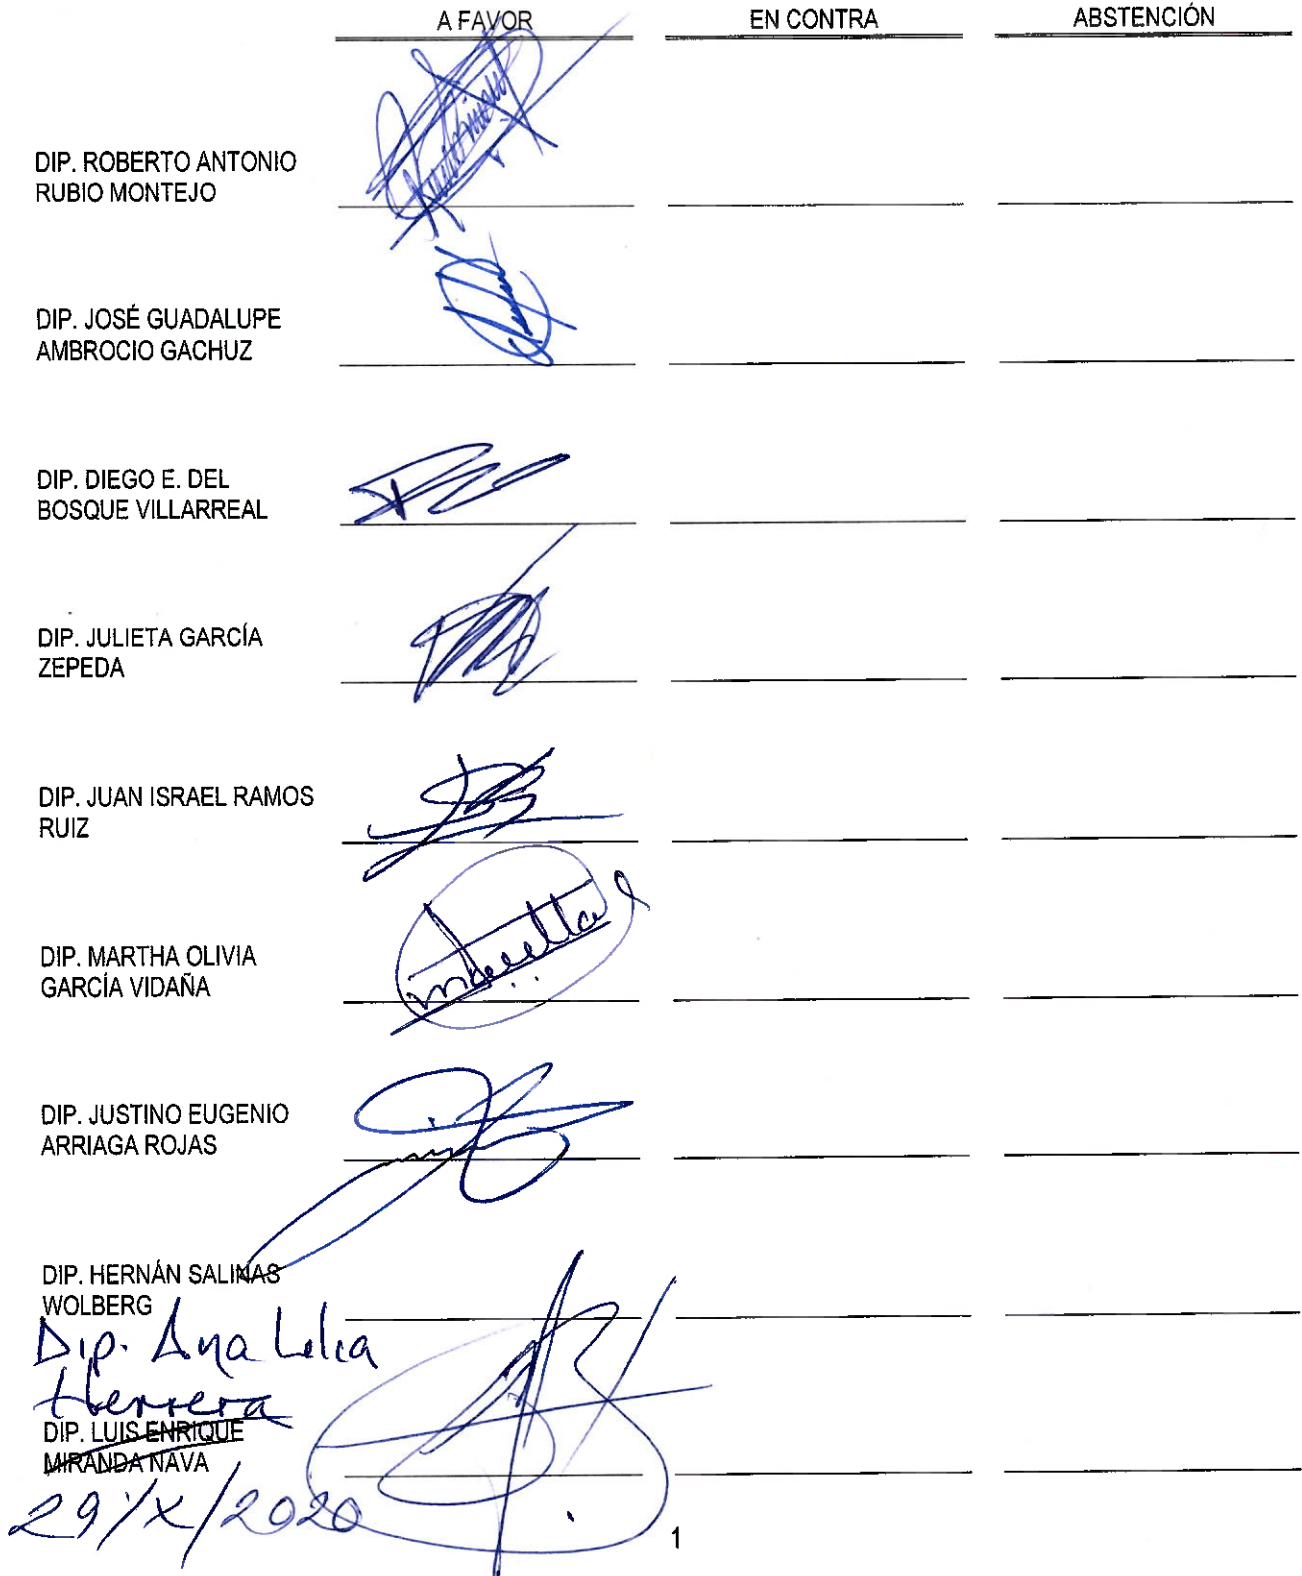 A FAVOR EN CONTRA ABSTENCIÓN
DIP. ROBERTO ANTONIO
RUBIO MONTEJO
DIP. JOSÉ GUADALUPE
AMBROCIO GACHUZ
DIP. DIEGO E. DEL
BOSQUE VILLARREAL
DIP. JULIETA GARCÍA
ZEPEDA
DIP. JUAN ISRAEL RAMOS
RUIZ
DIP. MARTHA OLIVIA
GARCÍA VIDAÑA
DIP. JUSTINO EUGENIO
ARRIAGA ROJAS
DIP. HERNÁN SALINAS
WOLBERG
Dip. Ana Lilia
Herrera
DIP. LUIS ENRIQUE
MIRANDA NAVA
29/X/2020
1